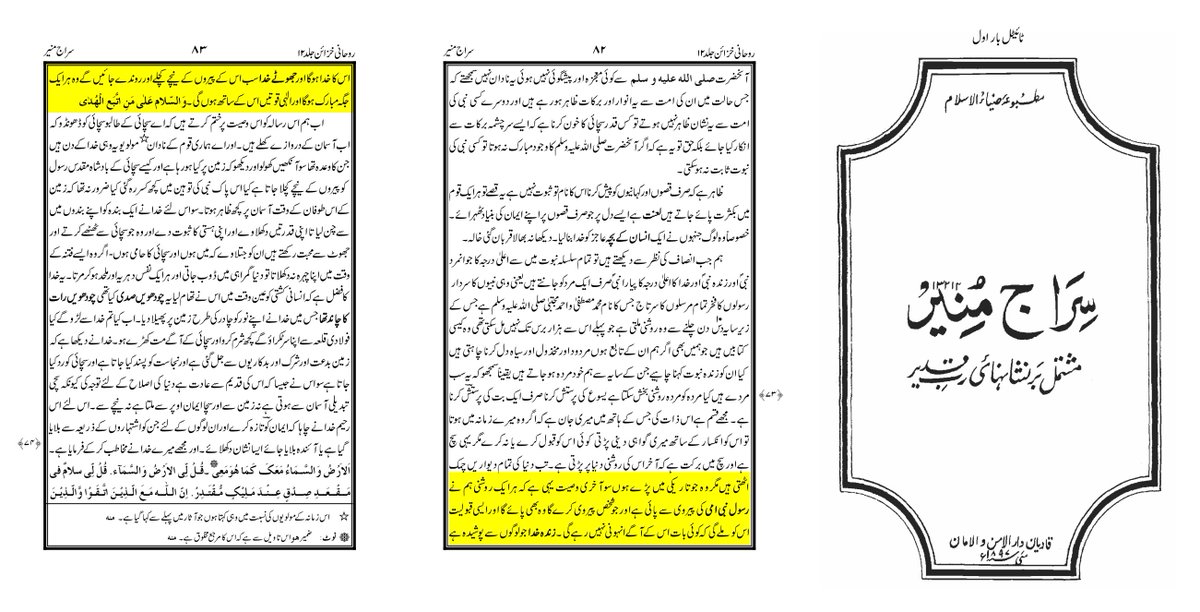 ٹائیٹل بار اول
مطبوعہ ضیاء الاسلام
سِرَاج مُنِیر
مشتمل بر نشانہائ رب قدیر
قادیان دار الامن والامان
روحانی خزائن جلد ۱۲
۸۲
سراج منیر
آنحضرت صلی اللہ علیہ و سلم سے کوئی معجزہ اور پیشگوئی نہیں ہوئی یہ نادان نہیں سمجھتے کہ
جس حالت میں ان کی امت سے یہ انوار اور برکات ظاہر ہو رہے ہیں اور دوسرے کسی نبی کی
امت سے یہ نشان ظاہر نہیں ہوتے تو کس قدر سچائی کا خون کرنا ہے کہ ایسے سرچشمہ برکات سے
انکار کیا جائے بلکہ حق تو یہ ہے کہ اگر آنحضرت صلی اللہ علیہ وسلم کا وجود مبارک نہ ہوتا تو کسی نبی کی
نبوت ثابت نہ ہو سکتی۔
ظاہر ہے کہ صرف قصوں اور کہانیوں کو پیش کرنا اس کا نام تو ثبوت نہیں ہے یہ قصے تو ہر ایک قوم
میں بکثرت پائے جاتے ہیں لعنت ہے ایسے دل پر جو صرف قصوں پر اپنے ایمان کی بنیاد ٹھہرائے۔
خصوصاً وہ لوگ جنہوں نے ایک انسان کے بچہ عاجز کو خدا بنا لیا۔ دیکھا نہ بھالا قربان گئی خالہ۔
ہم جب انصاف کی نظر سے دیکھتے ہیں تو تمام سلسلہ نبوت میں سے اعلیٰ درجہ کا جوانمرد
نبی اور زندہ نبی اور خدا کا اعلیٰ درجہ کا پیارا نبی صرف ایک مرد کو جانتے ہیں یعنی وہی نبیوں کا سردار
رسولوں کا فخر تمام مرسلوں کا سرتاج جس کا نام محمد مصطفیٰ و احمد مجتبیٰ صلی اللہ علیہ وسلم ہے جس کے
زیر سایہ دس دن چلنے سے وہ روشنی ملتی ہے جو پہلے اس سے ہزار برس تک نہیں مل سکتی تھی وہ کیسی
کتابیں ہیں جو ہمیں بھی اگر ہم ان کے تابع ہوں مردود اور مخذول اور سیاہ دل کرنا چاہتی ہیں
کیا ان کو زندہ نبوت کہنا چاہیے جن کے سایہ سے ہم خود مردہ ہو جاتے ہیں یقیناً سمجھو کہ یہ سب
مردے ہیں کیا مردہ کو مردہ روشنی بخش سکتا ہے یسوع کی پرستش کرنا صرف ایک بت کی پرستش کرنا
ہے۔ مجھے قسم ہے اس ذات کی جس کے ہاتھ میں میری جان ہے کہ اگر وہ میرے زمانہ میں ہوتا
تو اس کو انکسار کے ساتھ میری گواہی دینی پڑتی کوئی اس کو قبول کرے یا نہ کرے مگر یہی سچ
ہے اور سچ میں برکت ہے کہ آخر اس کی روشنی دنیا پر پڑتی ہے۔ تب دنیا کی تمام دیواریں چمک
اٹھتی ہیں مگر وہ جو تاریکی میں پڑے ہوں سو آخری وصیت یہی ہے کہ ہر ایک روشنی ہم نے
رسول نبی امی کی پیروی سے پائی ہے اور جو شخص پیروی کرے گا وہ بھی پائے گا اور ایسی قبولیت
اس کو ملے گی کہ کوئی بات اس کے آگے انہونی نہیں رہے گی۔ زندہ خدا جو لوگوں سے پوشیدہ ہے
﴿۷۳﴾
روحانی خزائن جلد ۱۲
۸۳
سراج منیر
اس کا خدا ہوگا اور جھوٹے خدا سب اس کے پیروں کے نیچے کچلے اور روندے جائیں گے وہ ہر ایک
جگہ مبارک ہوگا اور الٰہی قوتیں اس کے ساتھ ہوں گی۔ وَالسّلام علٰی مَنِ اتّبع الْھُدٰی
اب ہم اس رسالہ کو اس وصیت پر ختم کرتے ہیں کہ اے سچائی کے طالبو سچائی کو ڈھونڈو کہ
اب آسمان کے دروازے کھلے ہیں۔ اور اے ہماری قوم کے نادان☆ مولویو یہ وہی خدا کے دن ہیں
جن کا وعدہ تھا سو آنکھیں کھولو اور دیکھو کہ زمین پر کیا ہو رہا ہے اور کیسے سچائی کے بادشاہ مقدس رسول
کو پیروں کے نیچے کچلا جاتا ہے کیا اس پاک نبی کی توہین میں کچھ کسر رہ گئی کیا ضرور نہ تھا کہ زمین
کے اس طوفان کے وقت آسمان پر کچھ ظاہر ہوتا۔ سو اس لئے خدا نے ایک بندہ کو اپنے بندوں میں
سے چن لیا تا اپنی قدرتیں دکھلاوے اور اپنی ہستی کا ثبوت دے اور وہ جو سچائی سے ٹھٹھے کرتے اور
جھوٹ سے محبت رکھتے ہیں ان کو جتلاوے کہ میں ہوں اور سچائی کا حامی ہوں۔ اگر وہ ایسے فتنہ کے
وقت میں اپنا چہرہ نہ دکھلاتا تو دنیا گمراہی میں ڈوب جاتی اور ہر ایک نفس دہریہ اور ملحد ہو کر مرتا۔ یہ خدا
کا فضل ہے کہ انسانی کشتی کو عین وقت میں اس نے تھام لیا یہ چودھویں صدی کیا تھی چودھویں رات
کا چاند تھا جس میں خدا نے اپنے نور کو چادر کی طرح زمین پر پھیلا دیا۔ اب کیا تم خدا سے لڑو گے کیا
فولادی قلعہ سے اپنا سر ٹکراؤ گے کچھ شرم کرو اور سچائی کے آگے مت کھڑے ہو۔ خدا نے دیکھا ہے کہ
زمین بدعت اور شرک اور بدکاریوں سے جل گئی ہے اور نجاست کو پسند کیا جاتا ہے اور سچائی کو رد کیا
جاتا ہے سو اس نے جیسا کہ اس کی قدیم سے عادت ہے دنیا کی اصلاح کے لئے توجہ کی کیونکہ سچی
تبدیلی آسمان سے ہوتی ہے نہ زمین سے اور سچا ایمان اوپر سے ملتا ہے نہ نیچے سے۔ اس لئے اس
رحیم خدا نے چاہا کہ ایمان کو تازہ کرے اور ان لوگوں کے لئے جن کو اشتہاروں کے ذریعہ سے بلایا
گیا ہے یا آئندہ بلایا جائے ایسا نشان دکھلائے۔ اور مجھے میرے خدا نے مخاطب کر کے فرمایا ہے۔
اَلارْض وَالسَّماءُ مَعَکَ کَمَا ھُوَ مَعِیْ۔ قُلْ لِّی الْاَرْضُ وَالسَّمَآء۔ قُلْ لِّی سلامٌ فی
مَقْعَدِ صِدْقٍ عِنْدَ مَلِیْکٍ مُّقْتَدِرٍ۔ اِنَّ اللّٰہ مَعَ الَّذِیْنَ اتَّقَوْا وَّالَّذِیْنَ
﴿۷۴﴾
☆ اس زمانہ کے مولویوں کی نسبت میں وہی کہتا ہوں جو آثار میں پہلے سے کہا گیا ہے۔ منہ
نوٹ: ضمیر ھو اس تاویل سے ہے کہ اس کا مرجع مخلوق ہے۔ منہ